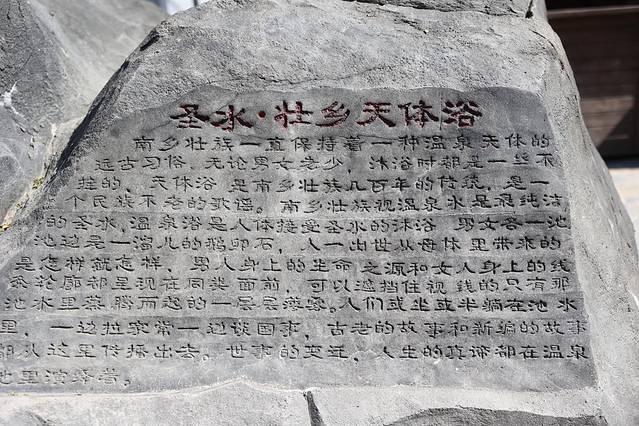 圣水·壮乡天体浴
南乡壮族一直保持着一种温泉天体的
远古习俗，无论男女老少，沐浴时都是一丝不
挂的，天体浴是南乡壮族几百年的传统，是一
个民族不老的歌谣。南乡壮族视温泉水是最纯洁
的圣水，温泉浴是人体接受圣水的沐浴，男女各一池
池边是一溜儿的鹅卵石，人一出世从母体里带来的
是怎样就怎样，男人身上的生命之源和女人身上的线
条轮廓都呈现在同类面前，可以遮挡住视线的只有那
池水里蒸腾而起的一层层雾霭。人们或坐或半躺在池水
里，一边拉家常一边谈国事，古老的故事和新编的故事
都从这里传播出去。世事的变迁，人生的真谛都在温泉
池里演绎着。